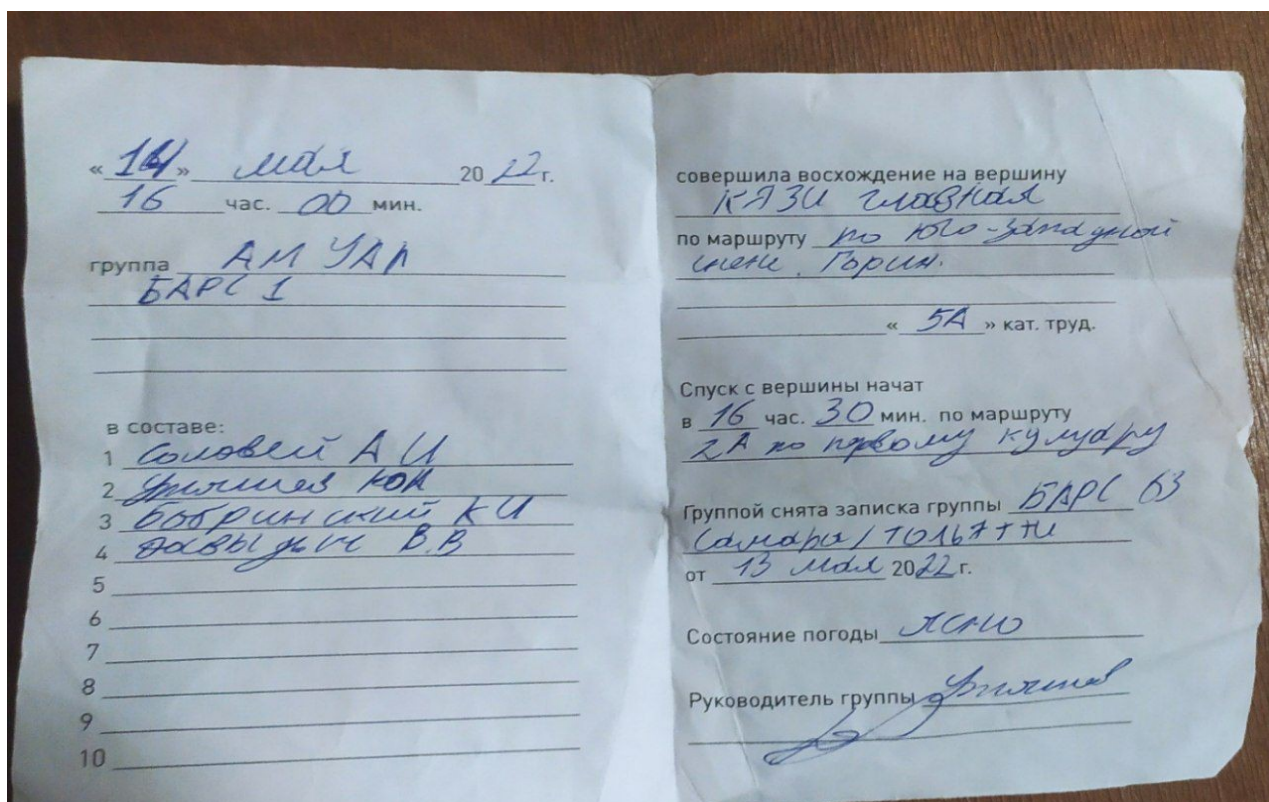 «14» мая 2022 г.
16 час. 00 мин.
группа АМ УАЛ
БАРС 1
в составе:
1 Соловей А И
2
3 Бобринский К И
4 Давыдыч В.В
5
6
7
8
9
10
совершила восхождение на вершину
КАЗИ главная
по маршруту по юго-западной
стене. Горин.
«5А» кат. труд.
Спуск с вершины начат
в 16 час. 30 мин. по маршруту
2А по первому кулуару
Группой снята записка группы БАРС 63
Самара/ТОЛЬЯТТИ
от 13 мая 2022 г.
Состояние погоды ясно
Руководитель группы